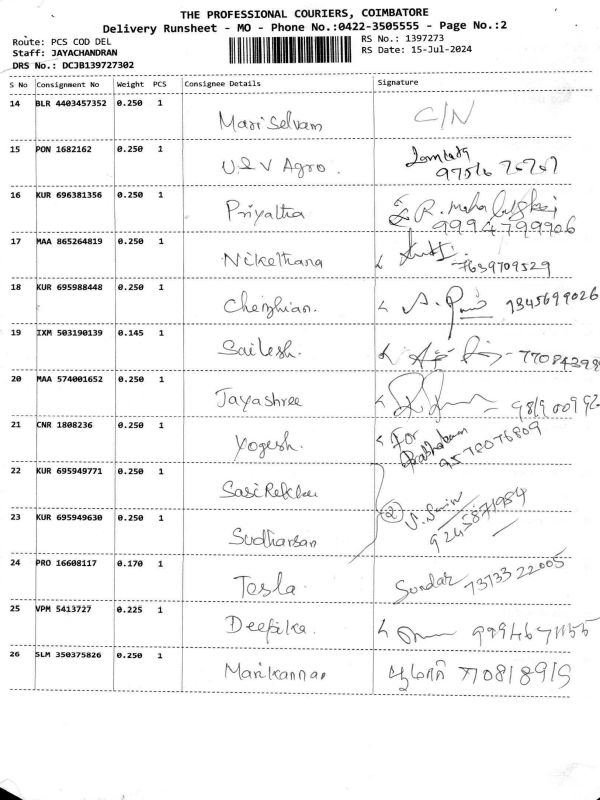 THE PROFESSIONAL COURIERS, COIMBATORE
Delivery Runsheet - MO - Phone No.:0422-3505555 - Page No.:2
Route: PCS COD DEL
RS No.: 1397273
Staff: JAYACHANDRAN
RS Date: 15-Jul-2024
DRS No.: DCJB139727302
S No Consignment No Weight PCS Consignee Details Signature
14 BLR 4403457352 0.250 1 Mari Selvam C/N
15 PON 1682162 0.250 1 U&V Agro.
16 KUR 696381356 0.250 1 Priyaltha R. Maha
9994799906
17 MAA 865264819 0.250 1 Nikethana
7639709529
18 KUR 695988448 0.250 1 Chezhian. 9345699026
19 IXM 503190139 0.145 1 Sailesh.
20 MAA 574001652 0.250 1 Jayashree
21 CNR 1808236 0.250 1 Yogesh. For
Prabhakaran
9578076809
22 KUR 695949771 0.250 1 SasiRekha
23 KUR 695949630 0.250 1 Sudharsan 2
9245871954
24 PRO 16608117 0.170 1 Tesla Sundar 73733 22005
25 VPM 5413727 0.225 1 Deepika. 9994671155
26 SLM 350375826 0.250 1 Marikannan 770818919